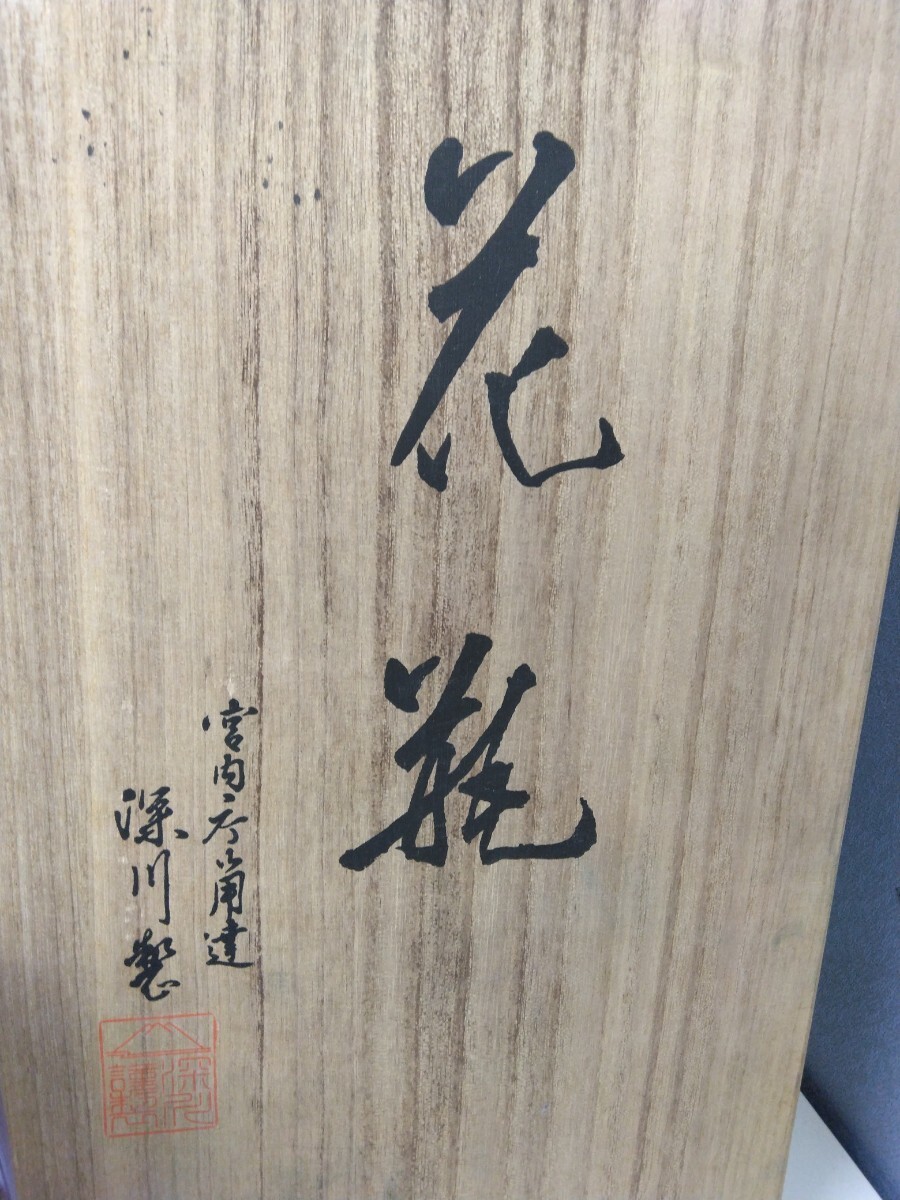 花瓶
宮内庁御用達
深川製
深川謹製